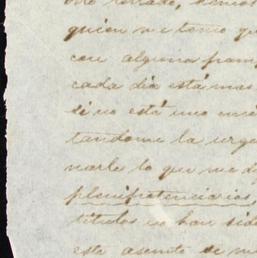 quien me temo qu
con alguna fran
cada dia está mas
si no está uno
tandome la urge
narle lo que me d
plenipotenciarios
titulos no han sid
este asunto si m